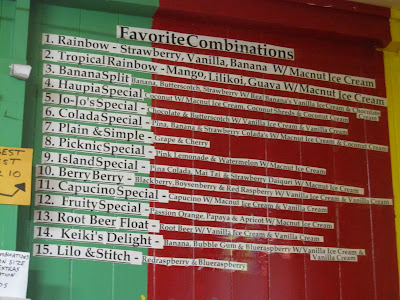 Favorite Combinations
1. Rainbow - Strawberry, Vanilla, Banana W/ Macnut Ice Cream
2. Tropical Rainbow - Mango, Lilikoi, Guava W/ Macnut Ice Cream
3. Banana Split - Banana, Butterscotch, Strawberry W/ Real Banana's Vanilla Ice Cream & Chocolate Cream
4. Haupia Special - Coconut W/ Macnut Ice Cream, Coconut Shreds & Coconut
5. Jo-Jo's Special - Chocolate & Butterscotch W/ Vanilla Ice Cream & Vanilla Cream
6. Colada Special - Pina, Banana & Strawberry Colada's W/ Macnut Ice Cream & Coconut
7. Plain & Simple - Grape & Cherry
8. Picknic Special - Pink Lemonade & Watermelon W/ Macnut Ice Cream
9. Island Special - Pina Colada, Mai Tai & Strawberry Daiquiri W/ Macnut Ice Cream
10. Berry Berry - Blackberry, Boysenberry & Red Raspberry W/ Vanilla Ice Cream & Vanilla Cream
11. Capucino Special - Capucino W/ Macnut Ice Cream & Vanilla Cream
12. Fruity Special - Passion Orange, Papaya & Apricot W/ Macnut Ice Cream
13. Root Beer Float - Root Beer W/ Vanilla Ice Cream & Vanilla Cream
14. Keiki's Delight - Banana, Bubble Gum & Blueraspberry W/ Vanilla Ice Cream & Vanilla Cream
15. Lilo & Stitch - Redraspberry & Blueraspberry
EST
ST
10
MBINATIONS
ON SIZE
EXTRAS
ATION
DS